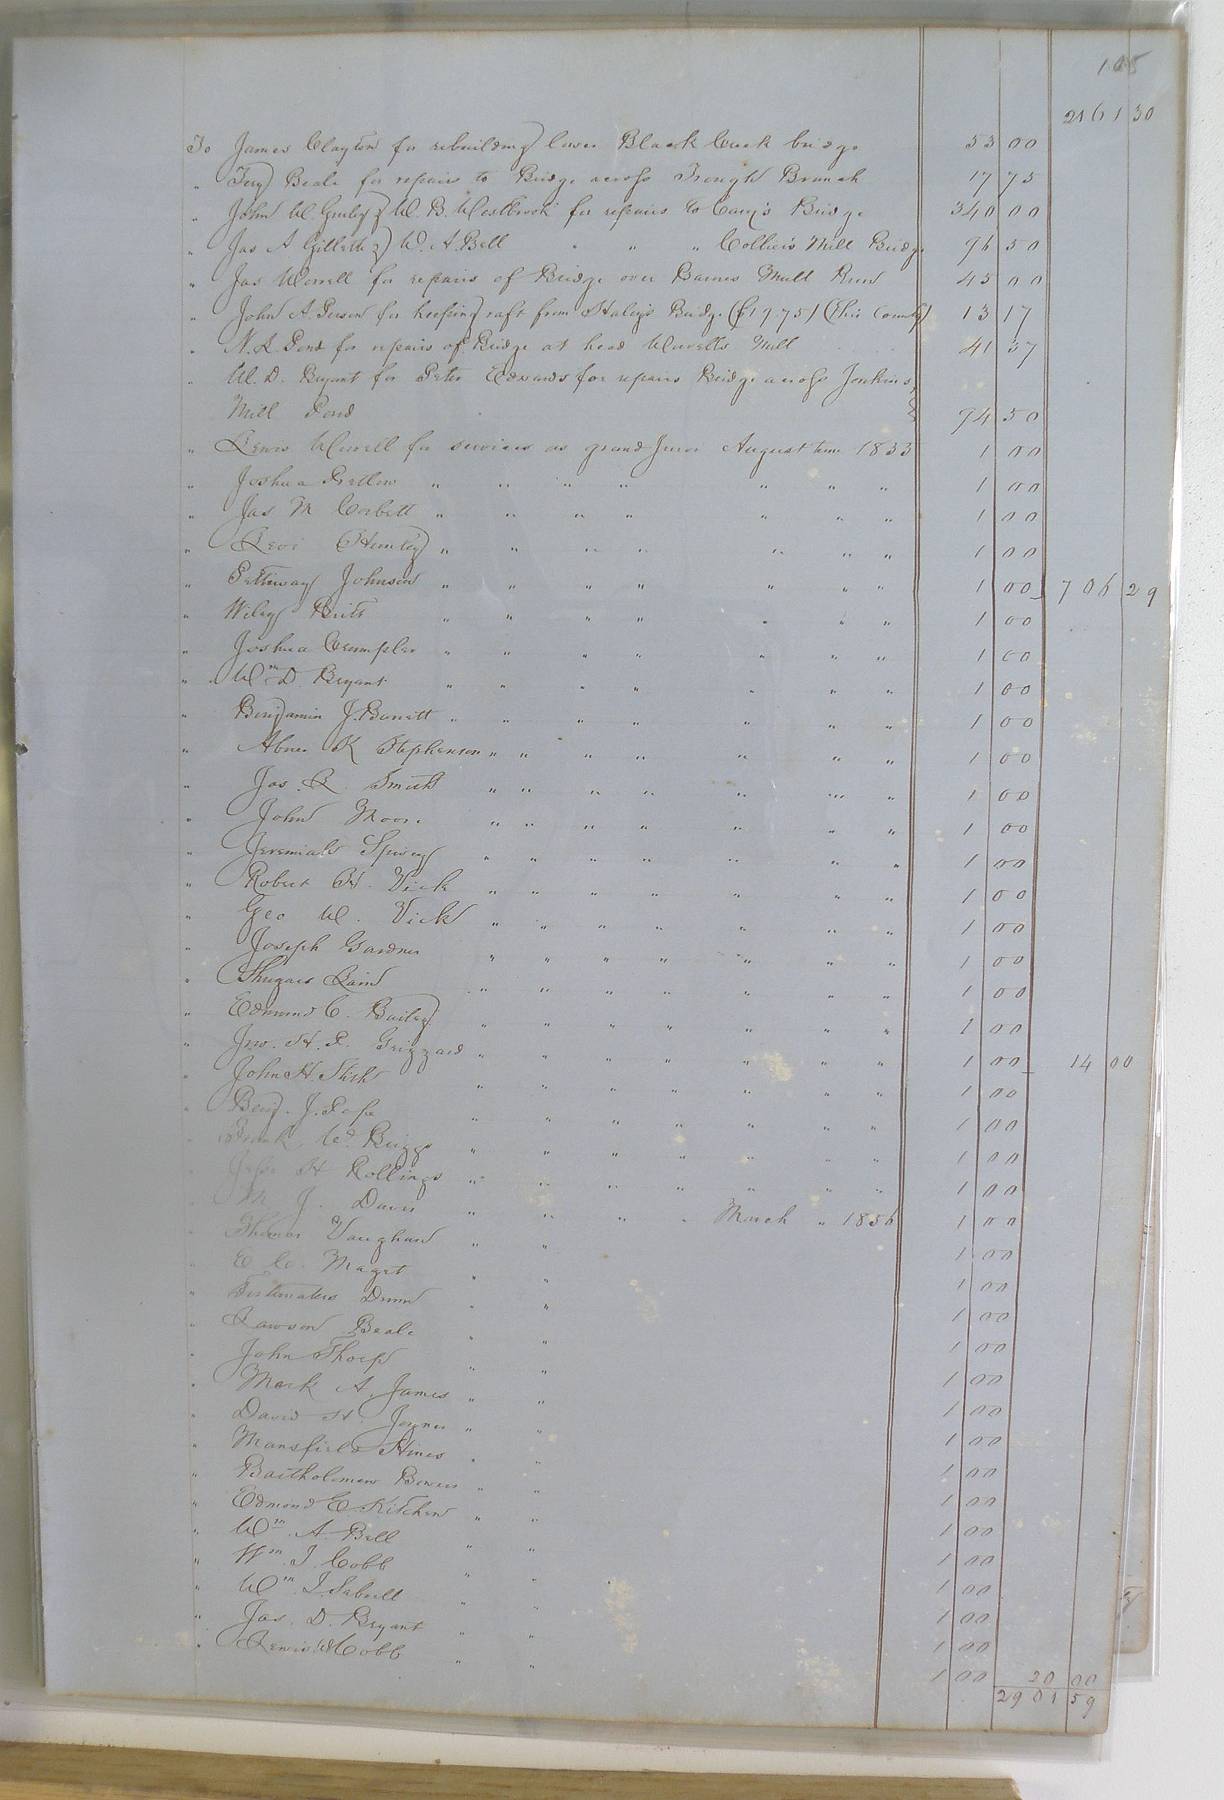 105
2161 30
To James Clayton for rebuilding lower Black Creek bridge 53 00
" Beale for repairs to Bridge across Trough Branch 17 75
" John W. Gurley & W. B. Westbrook for repairs to Cary's Bridge 340 00
" Jas A Gillette & W. A. Bell " " " Collier's Mill Bridge 96 50
" Jas Worrell for repairs of Bridge over Barnes Mill Run 45 00
" John A. Person for keeping raft from Haley's Bridge ($19.75) (this County) 13 17
" for repairs of Bridge at head Worrell's Mill 41 37
" W. D. Bryant for Peter Edwards for repairs Bridge across Jenkins
Mill Pond 94 50
" Lewis Worrell for services as grand Juror August term 1855 1 00
" Joshua Pretlow " " " " " " " 1 00
" Jas M Corbett " " " " " " " 1 00
" Levi " " " " " " " 1 00
" Pettway Johnson " " " " " " " 1 00 706 29
" Wiley Britt " " " " " " " 1 00
" Joshua Crumpler " " " " " " " 1 00
" Wm D. Bryant " " " " " " " 1 00
" Benjamin J. Barrett " " " " " " " 1 00
" Abner K Stephenson " " " " " " " 1 00
" Jas. R. Smith " " " " " " " 1 00
" John Moore " " " " " " " 1 00
" Jeremiah Spivey " " " " " " " 1 00
" Robert H. Vick " " " " " " " 1 00
" Geo W. Vick " " " " " " " 1 00
" Joseph Gardner " " " " " " " 1 00
" Shugars Lain " " " " " " " 1 00
" Edmund C. Bailey " " " " " " " 1 00
" Jno. H. P. Grizzard " " " " " " " 1 00 14 00
" John H. " " " " " " " 1 00
" Benj. J. Pope " " " " " " " 1 00
" Frank Wd. Briggs " " " " " " " 1 00
" Jesse H Rollings " " " " " " " 1 00
" J. Davis " " " " March " 1856 1 00
" Thomas Vaughan " " 1 00
" Maget " " 1 00
" Drewry " " 1 00
" Lawson Beale " " 1 00
" John Thorp " " 1 00
" Mark A. James " " 1 00
" David H. Joyner " " 1 00
" Mansfield Hines " " 1 00
" Bartholomew Bowers " " 1 00
" Edmond E. Kitchen " " 1 00
" Wm. A. Bell " " 1 00
" Wm. J. Cobb " " 1 00
" Wm. J. Sebrell " " 1 00
" Jas. D. Bryant " " 1 00
" Lewis W Cobb " " 1 00
1 00 20 00
2901 59